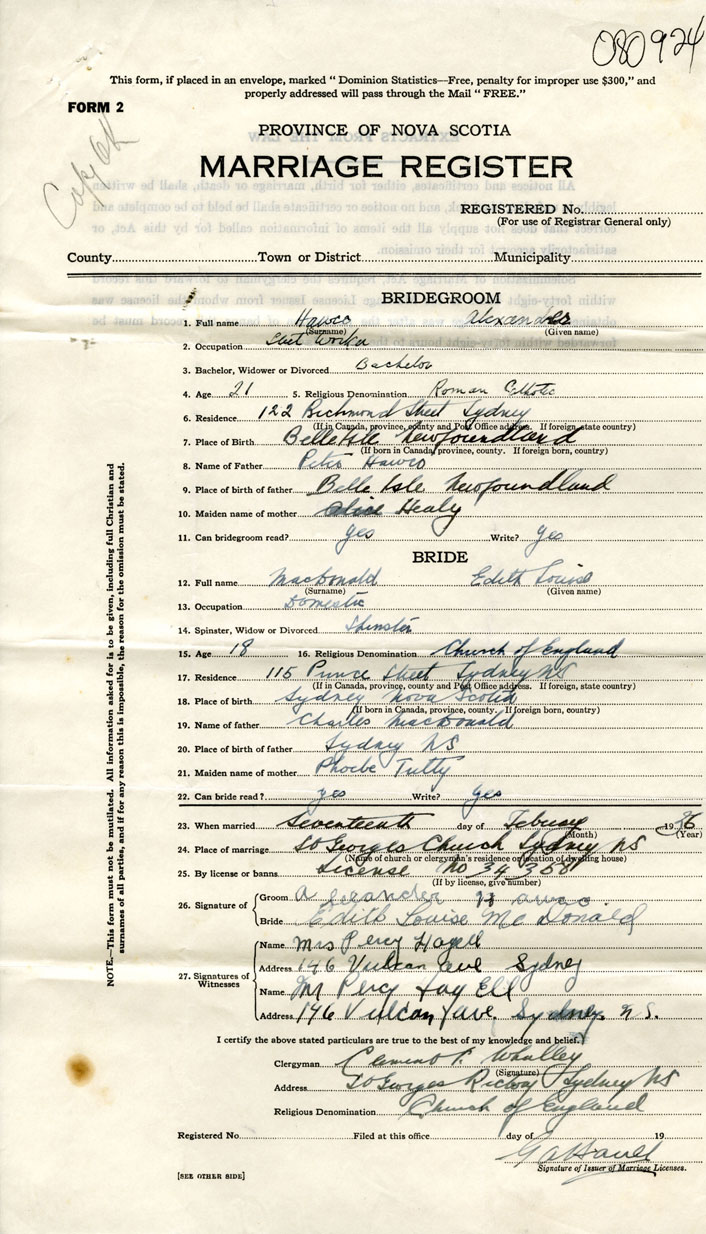 080924
This form, if placed in an envelope, marked “ Dominion Statistics—Free, penalty for improper use $300,” and
properly addressed will pass through the Mail “ FREE.”
FORM 2
Copy OK
PROVINCE OF NOVA SCOTIA
MARRIAGE REGISTER
REGISTERED No.
(For use of Registrar General only)
County Town or District Municipality
BRIDEGROOM
1. Full name Hawco Alexander
(Surname) (Given name)
2. Occupation Steel Worker
3. Bachelor, Widower or Divorced Bachelor
4. Age 21 5. Religious Denomination Roman Catholic
6. Residence 122 Richmond Street Sydney
(If in Canada, province, county and Post Office address. If foreign, state country)
7. Place of Birth Belle Isle Newfoundland
(If born in Canada, province, county. If foreign born, country)
8. Name of Father Peter Hawco
9. Place of birth of father Belle Isle Newfoundland
10. Maiden name of mother Alice Healy
11. Can bridegroom read? yes Write? yes
BRIDE
12. Full name MacDonald Edith Louise
(Surname) (Given name)
13. Occupation Domestic
14. Spinster, Widow or Divorced Spinster
15. Age 18 16. Religious Denomination Church of England
17. Residence 115 Prince Street Sydney NS
(If in Canada, province, county and Post Office address. If foreign, state country)
18. Place of birth Sydney Nova Scotia
(If born in Canada, province, county. If foreign born, country)
19. Name of father Charles MacDonald
20. Place of birth of father Sydney NS
21. Maiden name of mother Phoebe Tutty
22. Can bride read? yes Write? yes
23. When married Seventeenth day of February 1936
(Month) (Year)
24. Place of marriage St Georges Church Sydney NS
(Name of church or clergyman's residence or location of dwelling house)
25. By license or banns License No 34368
(If by license, give number)
26. Signature of Groom Alexander Hawco
Bride Edith Louise McDonald
27. Signatures of Witnesses
Name Mrs Percy Hayell
Address 146 Vulcan ave Sydney
Name Mr Percy Hayell
Address 146 Vulcan ave. Sydney N.S.
I certify the above stated particulars are true to the best of my knowledge and belief.
Clergyman Clement F. Whalley
(Signature)
Address St Georges Rectory Sydney NS
Religious Denomination Church of England
Registered No. Filed at this office day of 19
Signature of Issuer of Marriage Licenses.
[SEE OTHER SIDE]
NOTE.—This form must not be mutilated. All information asked for is to be given, including full Christian and
surnames of all parties, and if for any reason this is impossible, the reason for the omission must be stated.